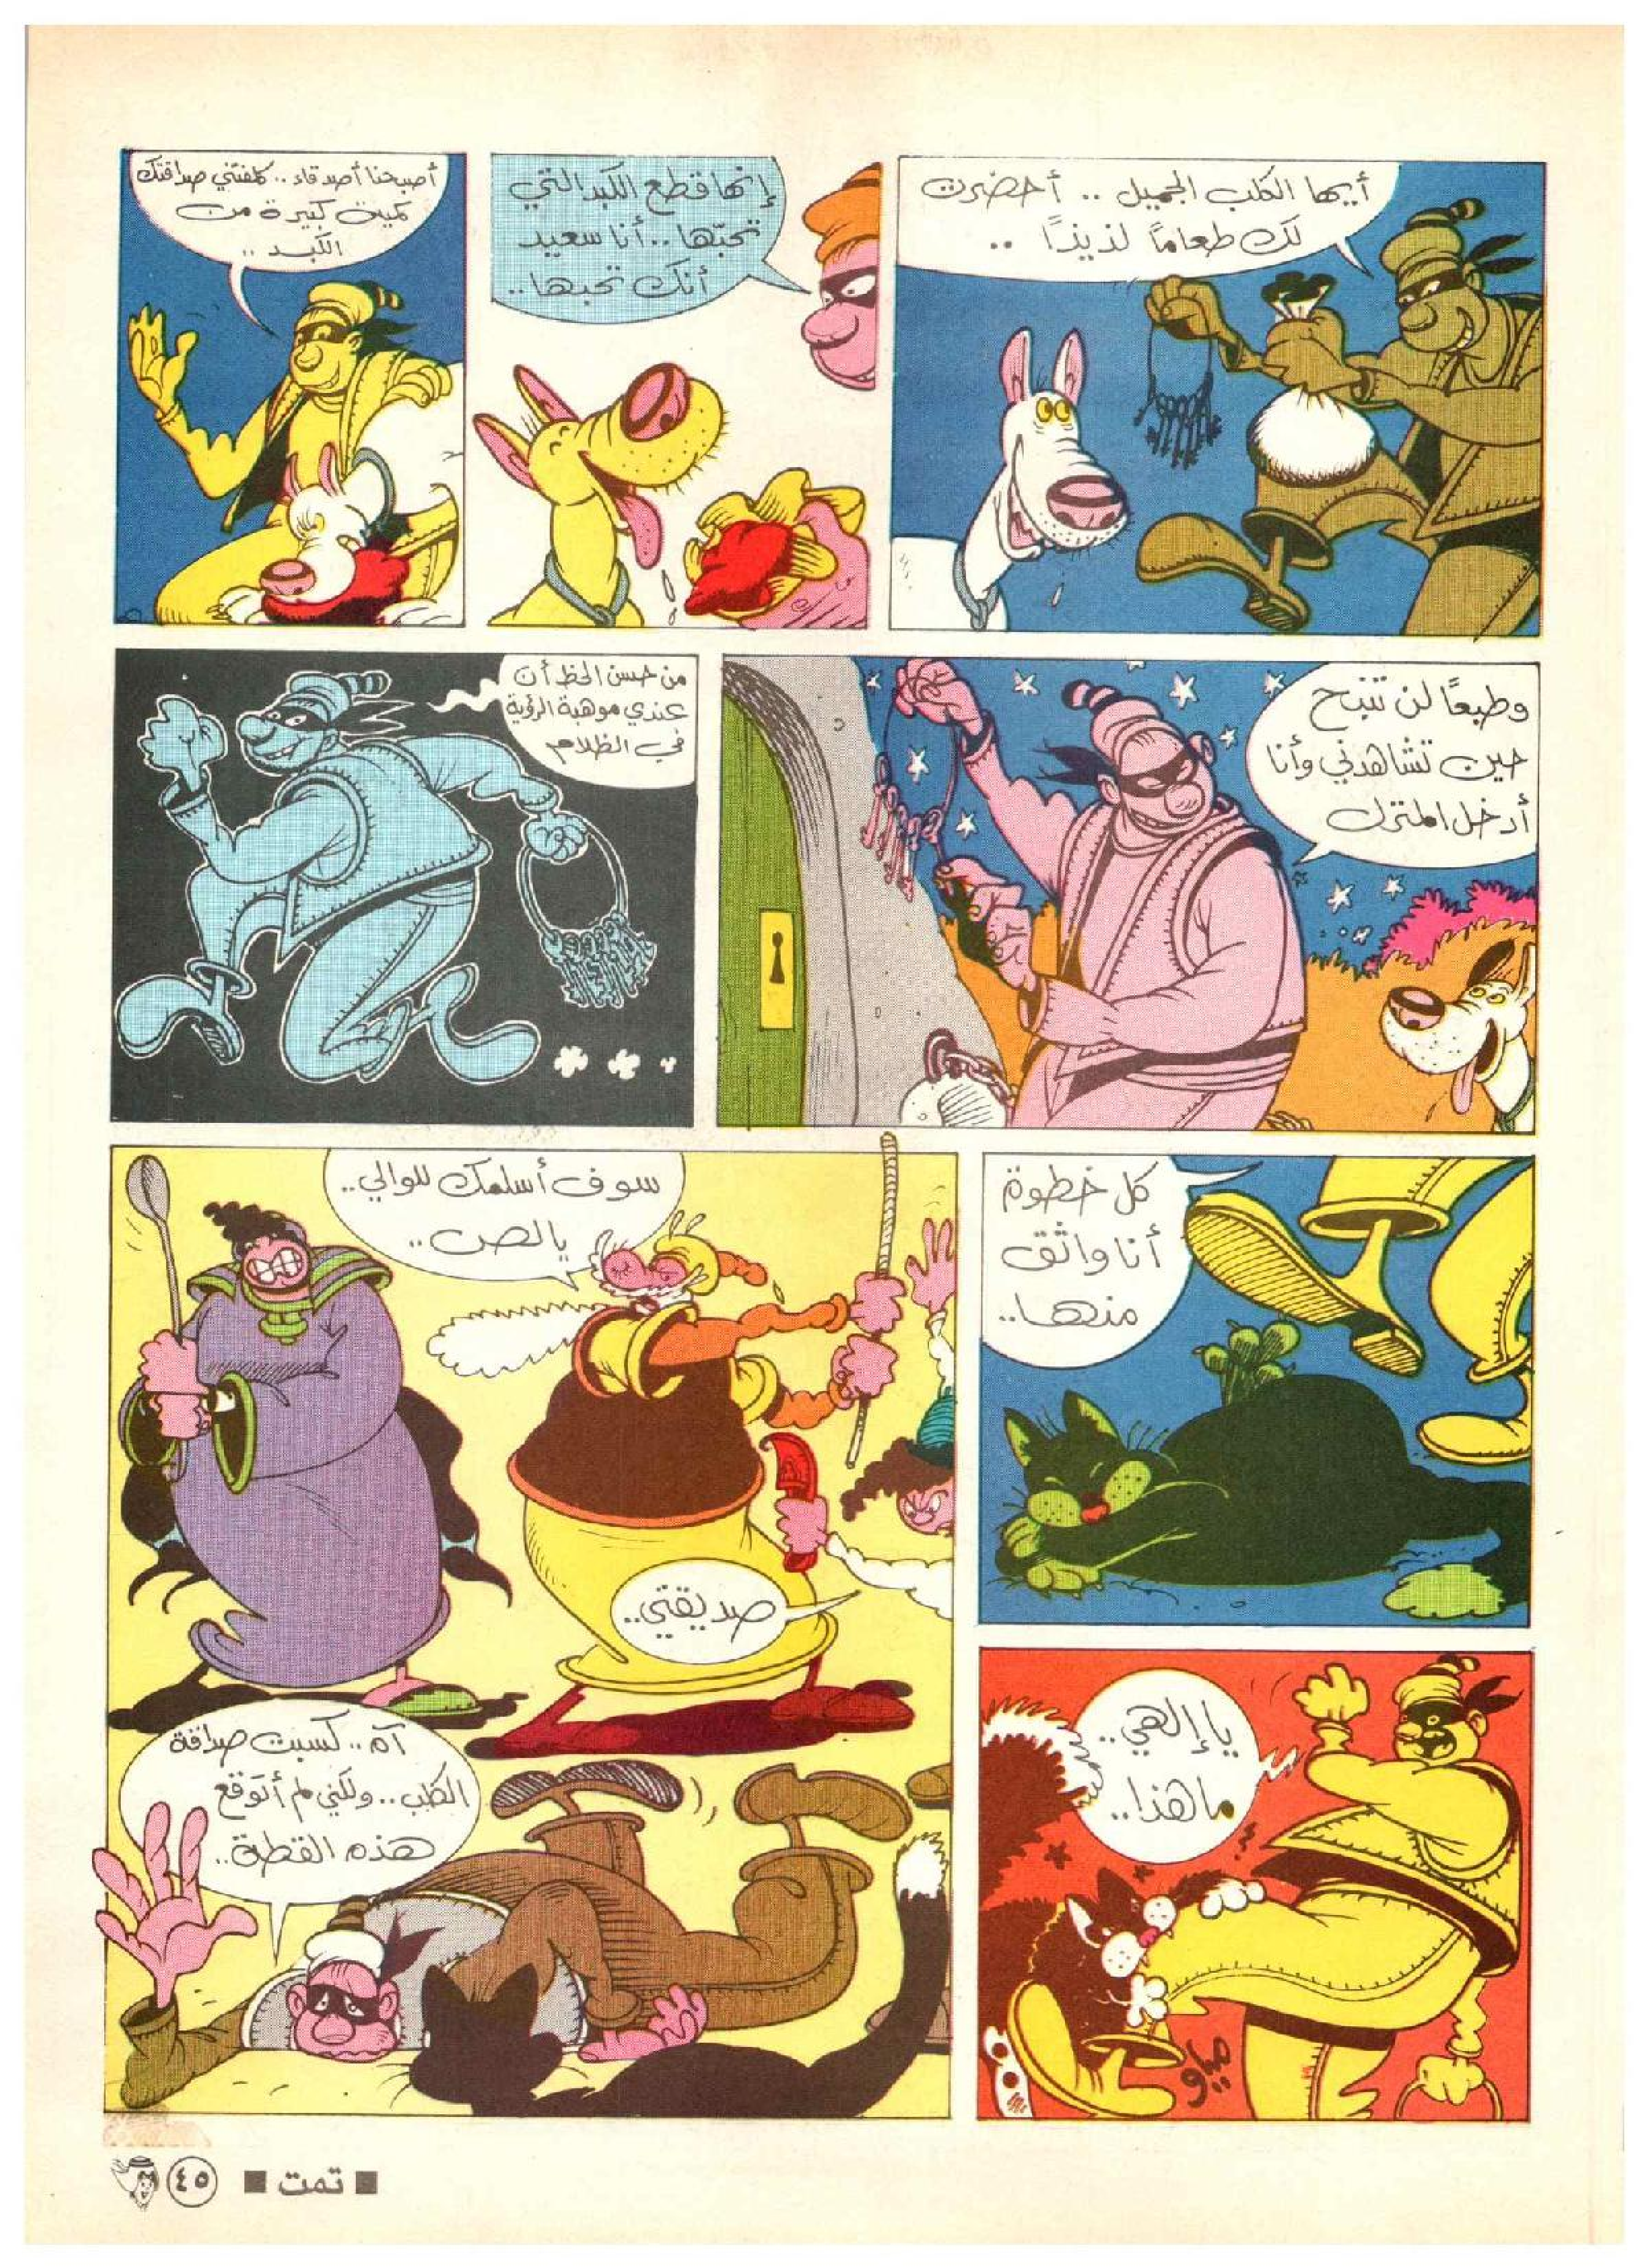 أيها الكلب الجميل .. أحضرت
لك طعاماً لذيذاً ..
إنها قطع الكبد التي
تحبّها .. أنا سعيد
أنك تحبها ..
أصبحنا أصدقاء .. كلفتني صداقتك
كمية كبيرة من
الكبد ..
وطبعًا لن تنبح
حين تشاهدني وأنا
أدخل المنزل
من حسن الحظ أن
عندي موهبة الرؤية
في الظلام
كل خطوة
أنا واثق
منها ..
يا إلهي ..
ما هذا ..
مياو
سوف أسلمك للوالي ..
يا لص ..
صديقتي ..
آه .. كسبت صداقة
الكلب .. ولكني لم أتوقع
هذه القطة ..
■ تمت ■ ٤٥